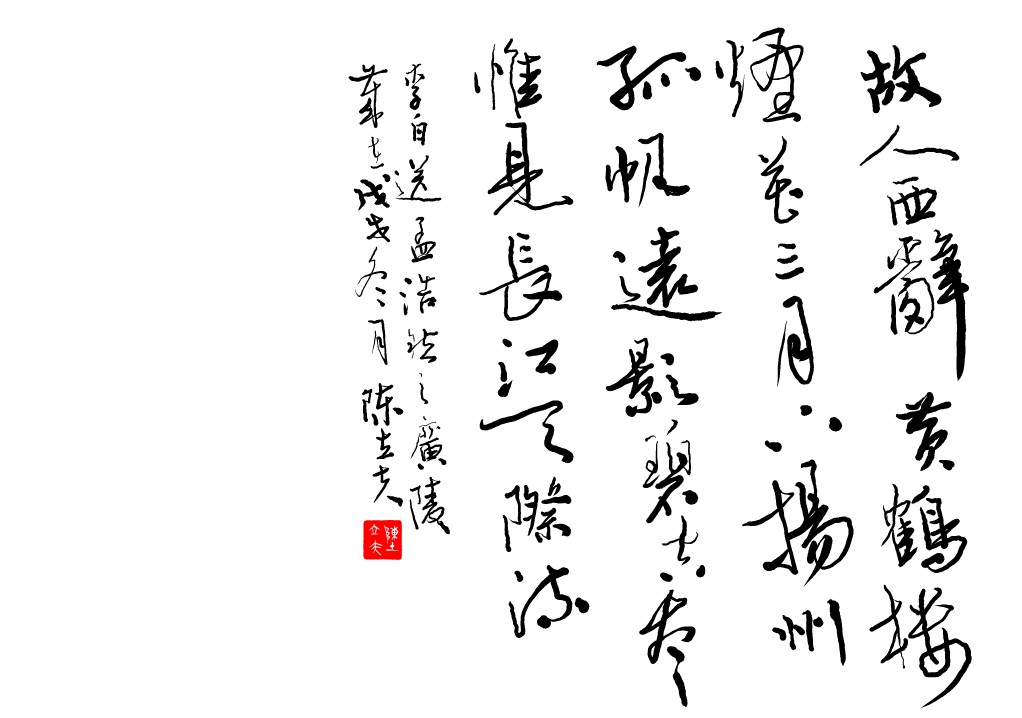 故人西辭黄鶴楼
煙花三月下揚州
孤帆遠影碧空尽
惟見長江天際流
李白送孟浩然之廣陵
歲在戊戌冬月 陈立夫